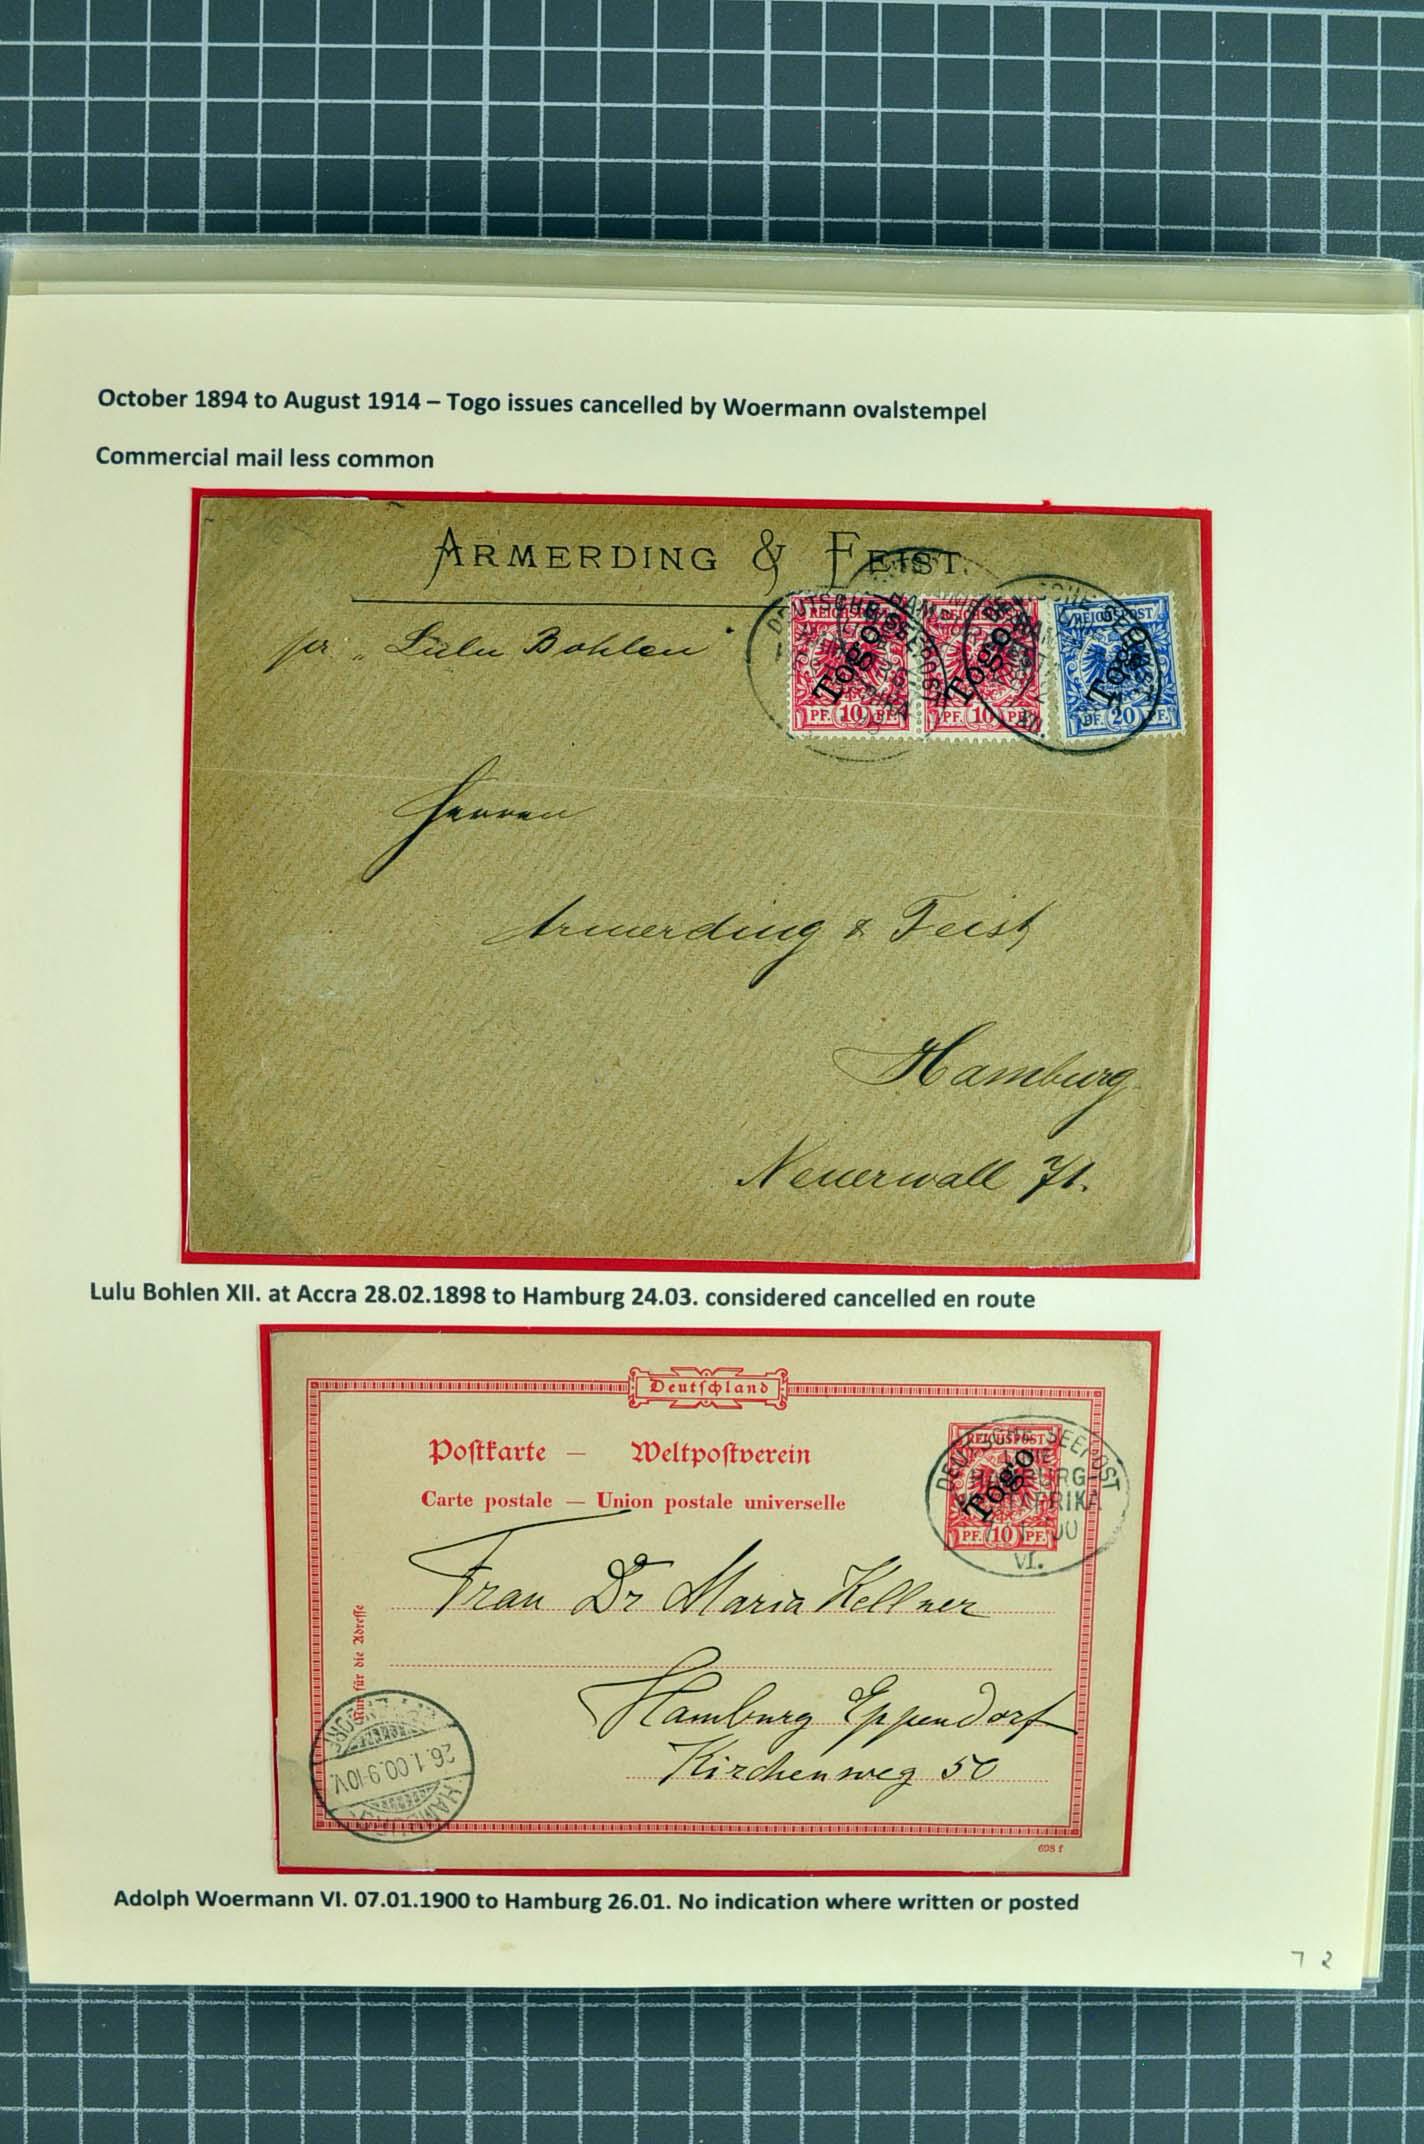 October 1894 to August 1914 – Togo issues cancelled by Woermann ovalstempel
Commercial mail less common
ARMERDING & FEIST.
pr „ Lulu Bohlen "
REICHSPOST REICHSPOST REICHSPOST
Togo Togo Togo
PF. 10 PF. PF. 10 PF. PF. 20 PF.
DEUTSCHE SEEPOST
Herren
Armerding & Feist
Hamburg
Neuerwall
Lulu Bohlen XII. at Accra 28.02.1898 to Hamburg 24.03. considered cancelled en route
Deutschland
Postkarte — Weltpostverein
Carte postale — Union postale universelle
REICHSPOST
Togo
PF. 10 PF.
DEUTSCHE SEEPOST
LINIE
HAMBURG-
WESTAFRIKA
VI.
Frau Dr Maria Kellner
Hamburg Eppendorf
Kirchenweg 50
Nur für die Adresse
HAMBURG
26.1.00.9-10V.
698 f
Adolph Woermann VI. 07.01.1900 to Hamburg 26.01. No indication where written or posted
72